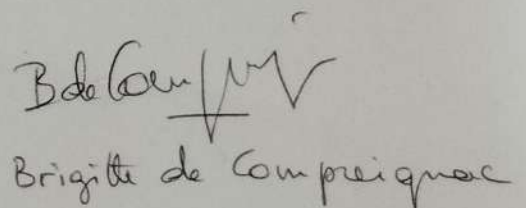 B de Com
Brigitte de Compreignac